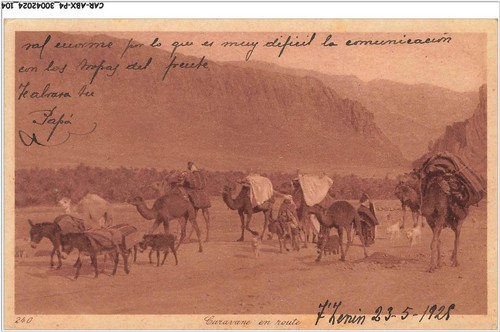 CAR-ABX-P4_30042024_104
ral enorme por lo que es muy dificil la comunicación
con los tropas del frente
Te abraza tu
Papá
240. Caravane en route
T'Zenin 23-5-1928